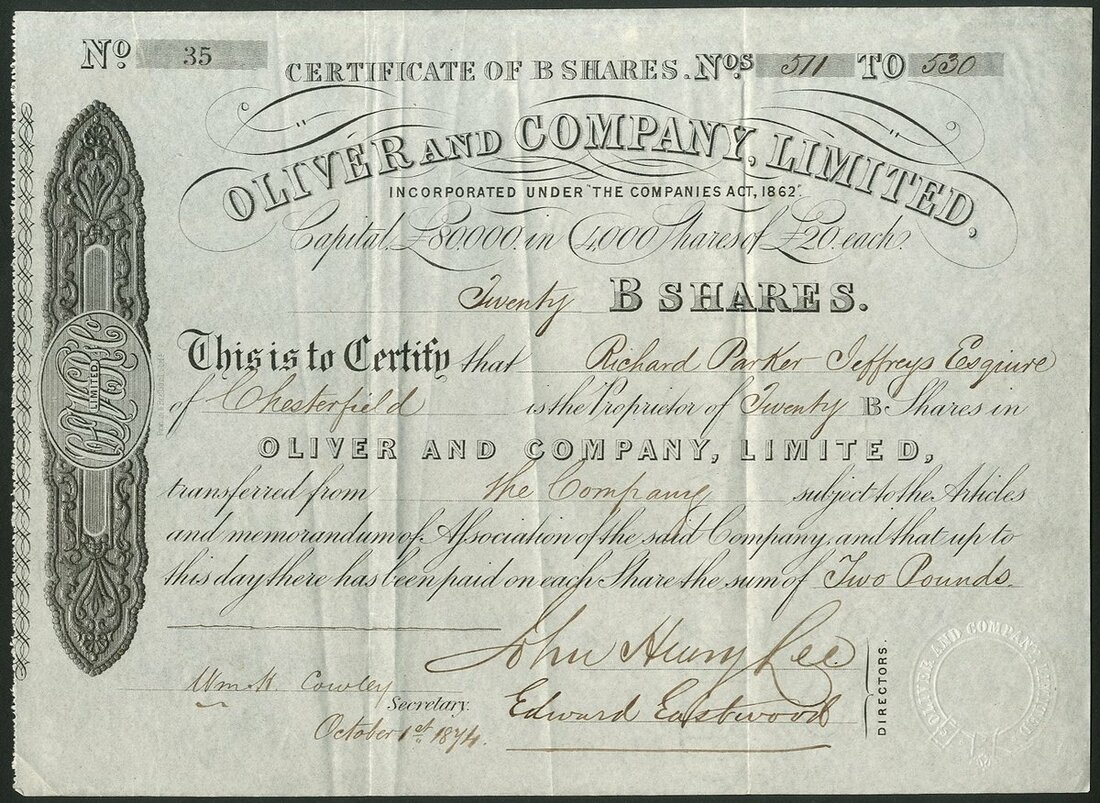 No. 35
CERTIFICATE OF B SHARES. Nos 511 TO 530
OLIVER AND COMPANY, LIMITED,
INCORPORATED UNDER "THE COMPANIES ACT, 1862".
Capital, £80,000, in 4,000 Shares of £20 each.
Twenty B SHARES.
This is to Certify that Richard Parker Jeffreys Esquire
of Chesterfield is the Proprietor of Twenty B. Shares in
OLIVER AND COMPANY, LIMITED,
transferred from the Company subject to the Articles
and memorandum of Association of the said Company, and that up to
this day there has been paid on each Share the sum of Two Pounds.
John Henry Lee
Edward Eastwood
DIRECTORS.
Wm. H. Cowley
Secretary.
October 1st 1874.
LIMITED
OLIVER AND COMPANY LIMITED